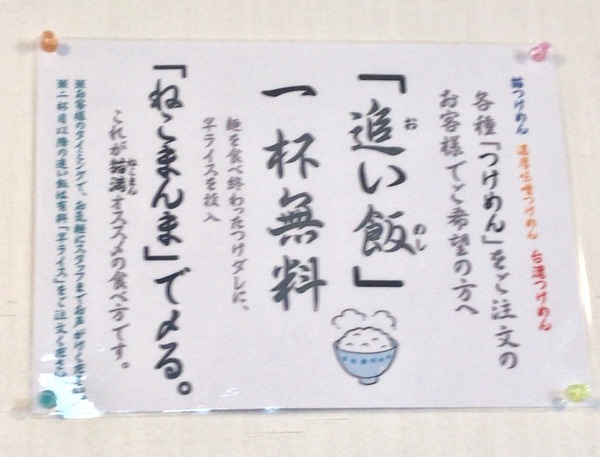 猫つけめん 濃厚味噌つけめん 台湾つけめん
各種「つけめん」をご注文の
お客様でご希望の方へ
「追い飯」
お めし
一杯無料
麺を食べ終わったつけダレに、
半ライスを投入
「ねこまんま」で〆る。
これが猫満オススメの食べ方です。
ねこまん
※お客様のタイミングで、お気軽にスタッフまでお声がけ下さい。
※二杯目以降の追い飯は有料「半ライス」をご注文下さい。